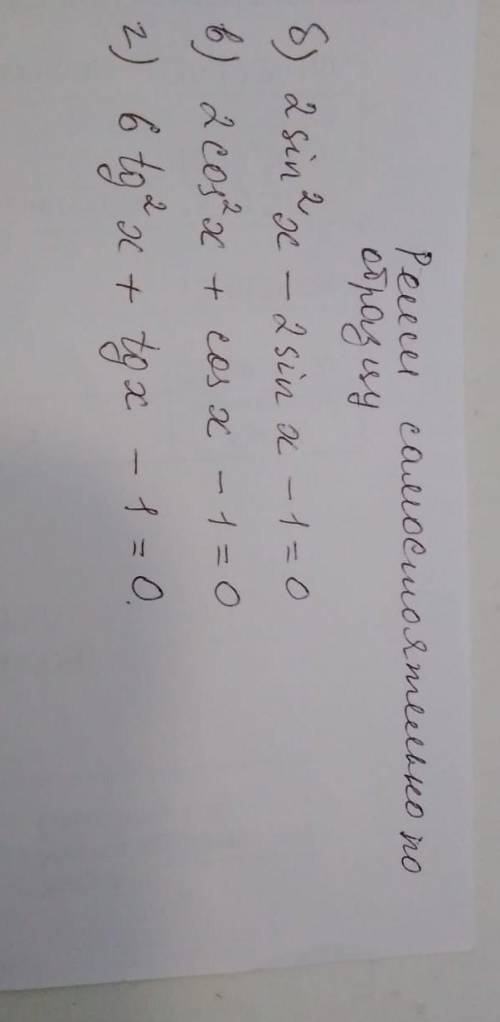 Реши самостоятельно по
образцу
б) 2 sin² x − 2 sin x − 1 = 0
в) 2 cos² x + cos x − 1 = 0
г) 6 tg² x + tg x − 1 = 0.